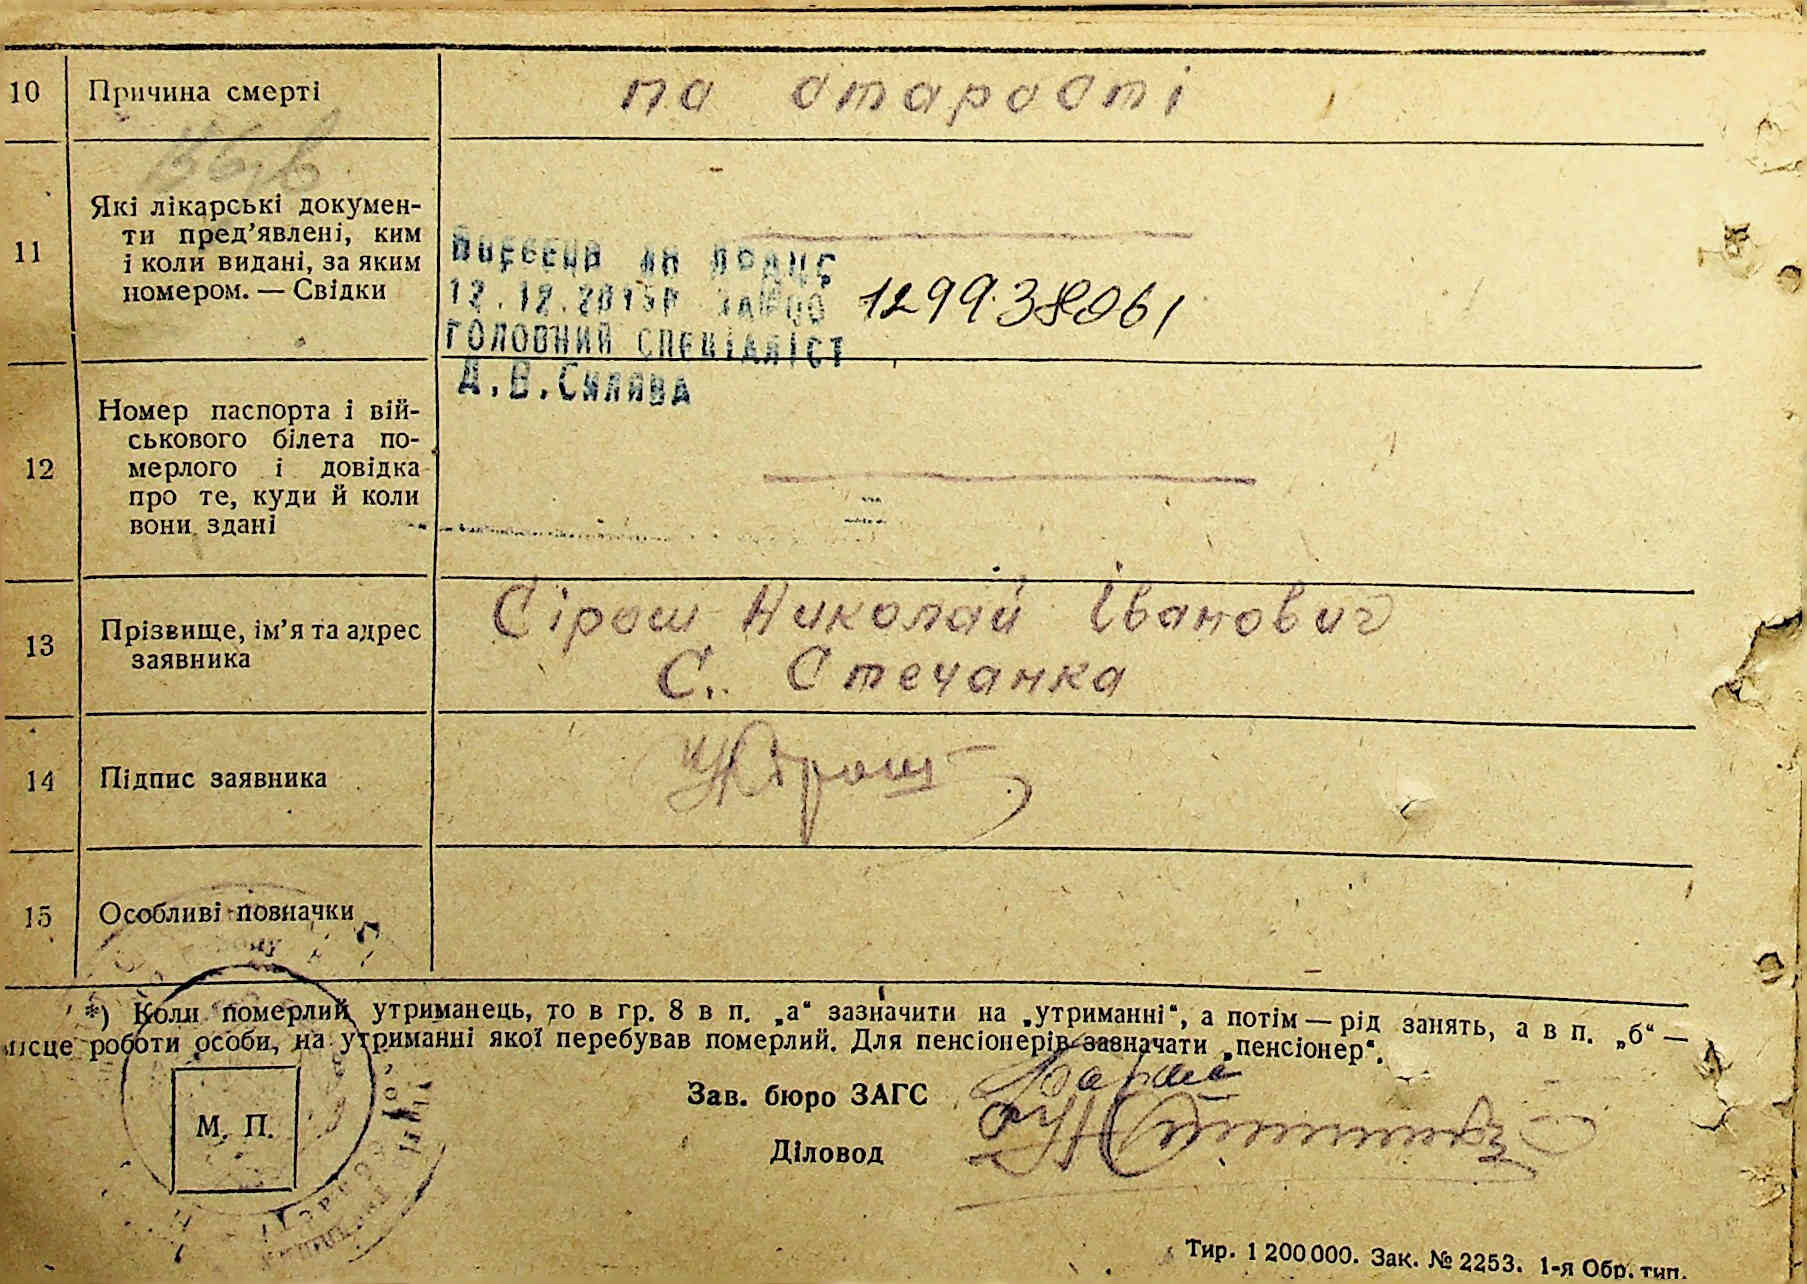 10 Причина смерті по старості
11 Які лікарські докумен-
ти пред’явлені, ким
і коли видані, за яким
номером. — Свідки
12.12.2015р 1299938061
ГОЛОВНИЙ СПЕЦІАЛІСТ
12 Номер паспорта і вій-
ськового білета по-
мерлого і довідка
про те, куди й коли
вони здані
13 Прізвище, ім’я та адрес
заявника
Сірош Николай Іванович
С. Стечанка
14 Підпис заявника
15 Особливі позначки
*) Коли померлий утриманець, то в гр. 8 в п. „а“ зазначити на „утриманні“, а потім — рід занять, а в п. „б“ —
місце роботи особи, на утриманні якої перебував померлий. Для пенсіонерів зазначати „пенсіонер“.
Зав. бюро ЗАГС
М. П.
Діловод
Тир. 1 200 000. Зак. № 2253. 1-я Обр. тип.